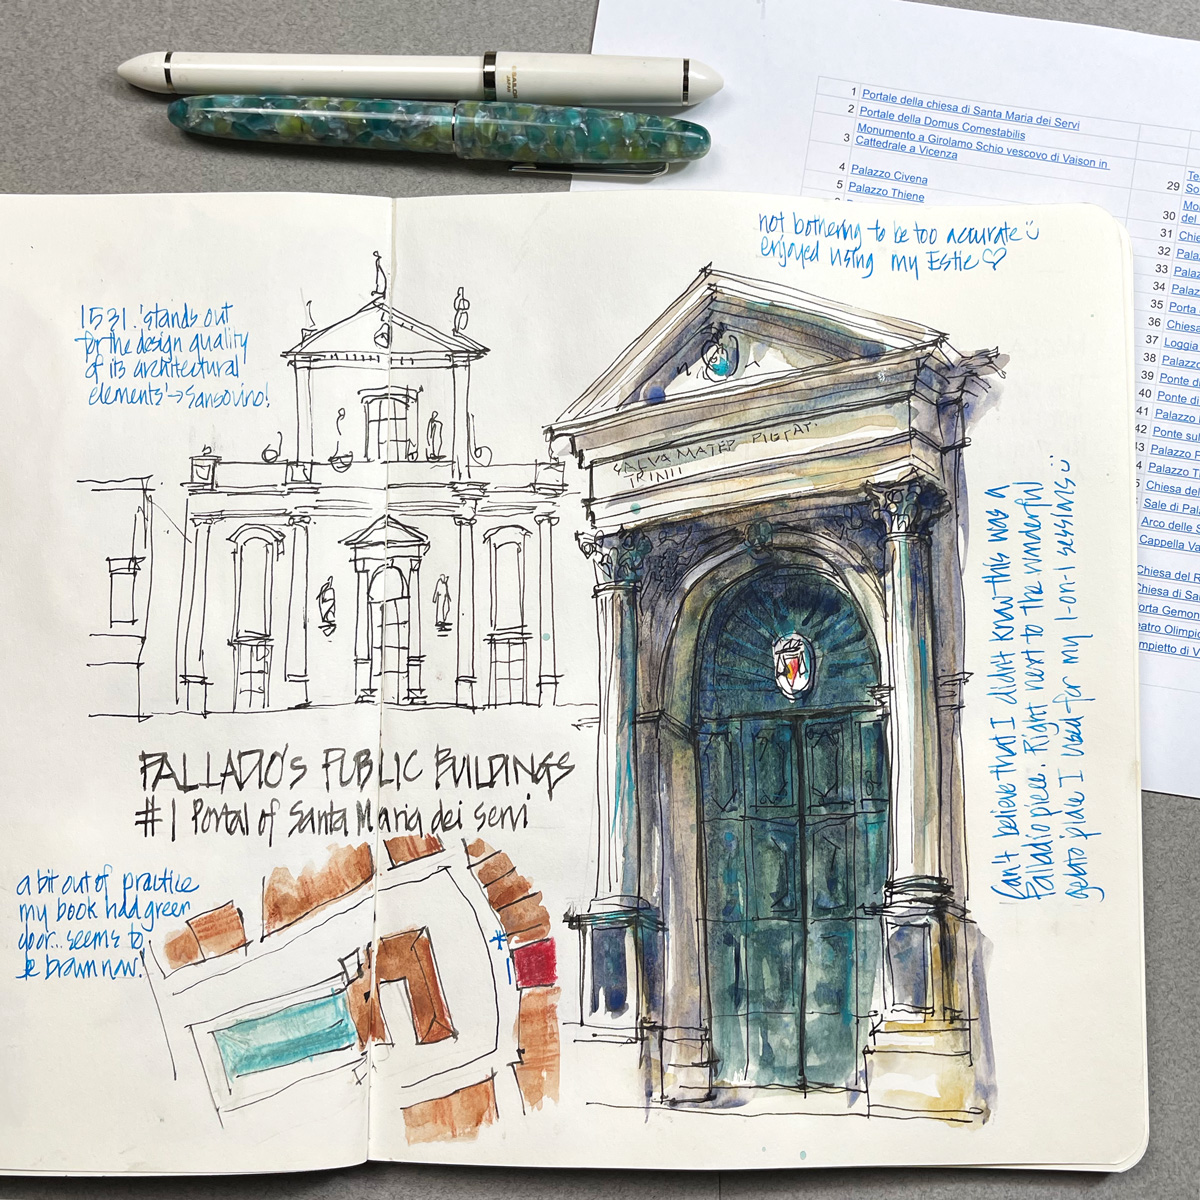 SAILOR
JAPAN
1 Portale della chiesa di Santa Maria dei Servi
2 Portale della Domus Comestabilis
3 Monumento a Girolamo Schio vescovo di Vaison in
Cattedrale a Vicenza
4 Palazzo Civena
5 Palazzo Thiene
29 Te
So
30 Mo
del
31 Chie
32 Pala
33 Pala
34 Palaz
35 Porta
36 Chiesa
37 Loggia
38 Palazzo
39 Ponte di
40 Ponte di
41 Palazzo
42 Ponte sul
43 Palazzo P
Palazzo T
Chiesa del
Sale di Pala
Arco delle S
Cappella Va
Chiesa del R
Chiesa di Sa
orta Gemon
eatro Olimpic
mpietto di V
not bothering to be too accurate
enjoyed using my Estie
1531. 'stands out
for the design quality
of its architectural
elements' → Sansovino!
SALVA MATER PIETAT.
TRINII
PALLADIO'S PUBLIC BUILDINGS
#1 Portal of Santa Maria dei Servi
a bit out of practice
my book had green
door... seems to
be brown now!
* 1
Can't believe that I didn't know this was a
Palladio piece. Right next to the wonderful
gelato place I used for my 1-on-1 sessions